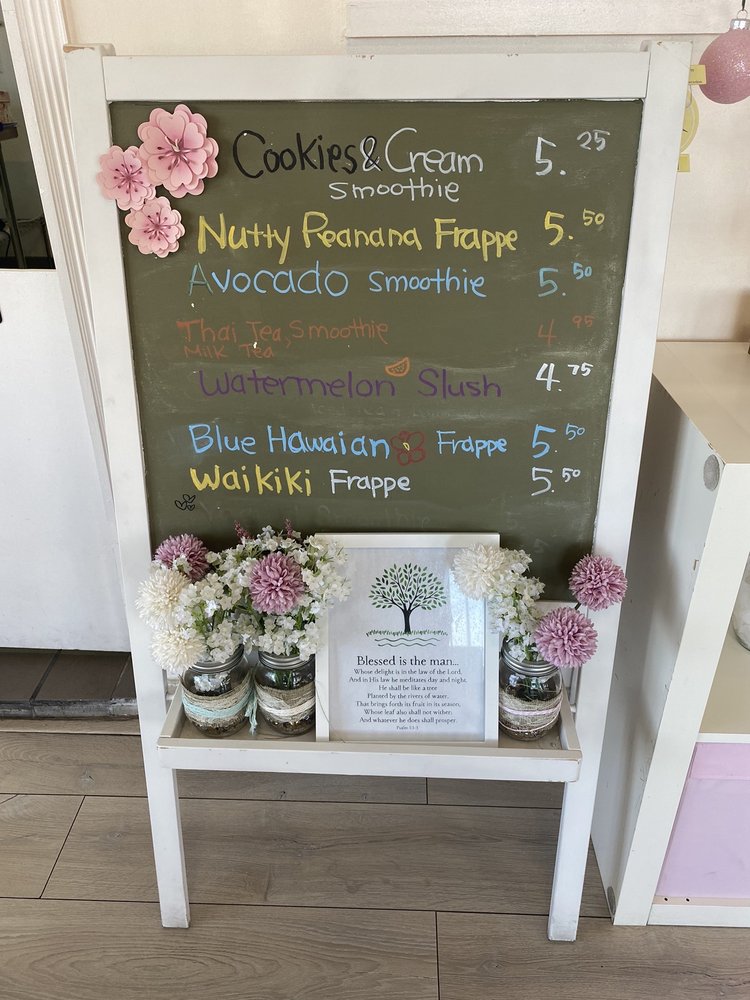 Cookies & Cream 5.25
Smoothie
Nutty Peanana Frappe 5.50
Avocado Smoothie 5.50
Thai Tea, Smoothie 4.95
Milk Tea
Watermelon Slush 4.75
Blue Hawaiian Frappe 5.50
Waikiki Frappe 5.50
Blessed is the man...
Whose delight is in the law of the Lord,
And in His law he meditates day and night.
He shall be like a tree
Planted by the rivers of water,
That brings forth its fruit in its season,
Whose leaf also shall not wither;
And whatever he does shall prosper.
Psalm 1:1-3